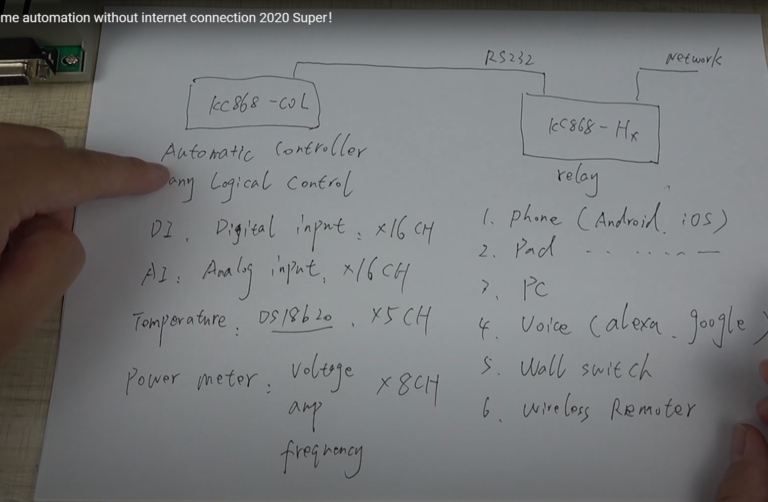 me automation without internet connection 2020 Super!
RS232
Network
KC868-COL
KC868-Hx
Automatic Controller
any Logical Control
DI. Digital input: x16 CH
AI: Analog input, x16 CH
Temperature: DS18b20. x5 CH
Power meter: voltage x8CH
amp
frequency
relay
1. phone (Android. iOS)
2. Pad
3. PC
4. Voice (alexa. google)
5. Wall switch
6. Wireless Remoter